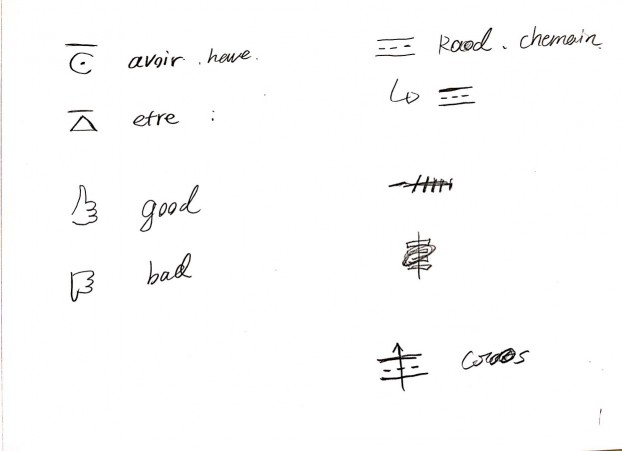 avoir . have.
etre :
good
bad
Road . chemain